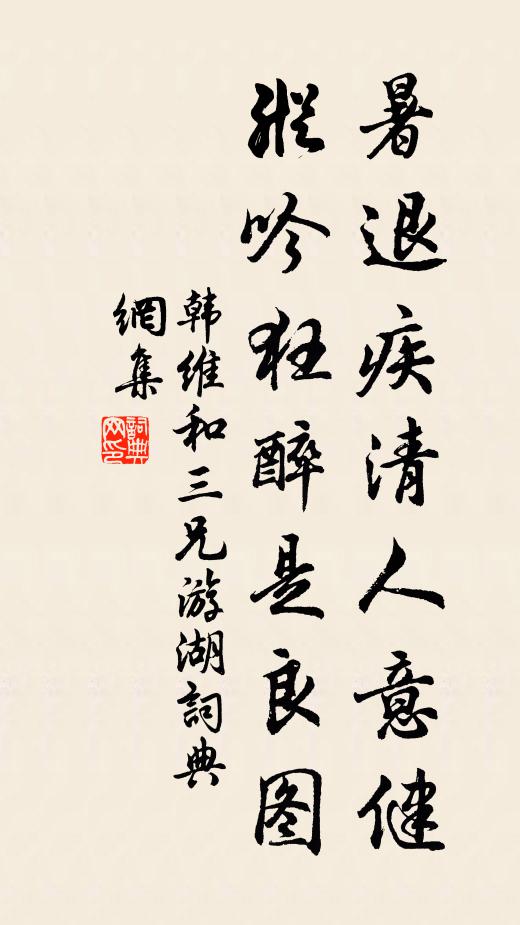 暑退疾清人意健
縱吟狂醉是良图
韩維和三兄游湖詞典
網集
詞典網印